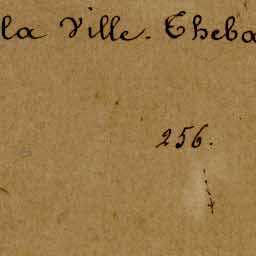 la Ville. Theba
256.